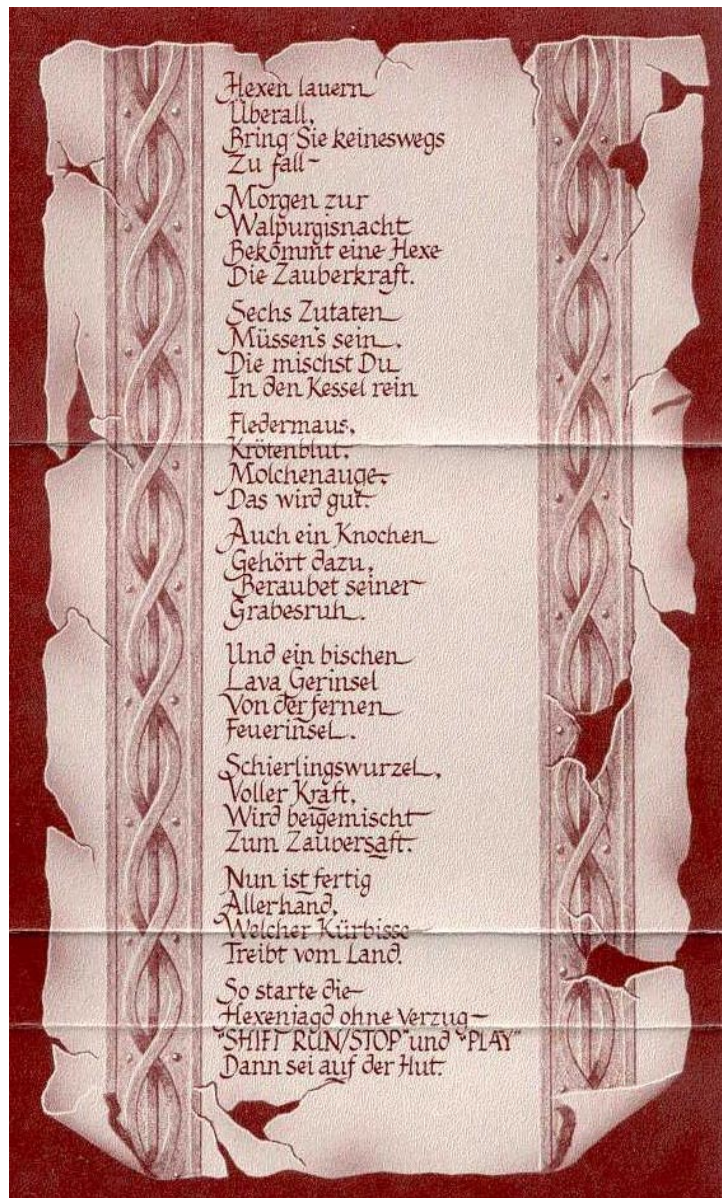 Hexen lauern
Überall,
Bring Sie keineswegs
Zu fall-
Morgen zur
Walpurgisnacht
Bekommt eine Hexe
Die Zauberkraft.
Sechs Zutaten
Müssen's sein,
Die mischst Du
In den Kessel rein
Fledermaus,
Krötenblut,
Molchenauge,
Das wird gut.
Auch ein Knochen
Gehört dazu,
Beraubet seiner
Grabesruh.
Und ein bischen
Lava Gerinsel
Von der fernen
Feuerinsel.
Schierlingswurzel,
Voller Kraft,
Wird beigemischt
Zum Zaubersaft.
Nun ist fertig
Allerhand,
Welcher Kürbisse
Treibt vom Land.
So starte die
Hexenjagd ohne Verzug-
"SHIFT RUN/STOP" und "PLAY"
Dann sei auf der Hut.